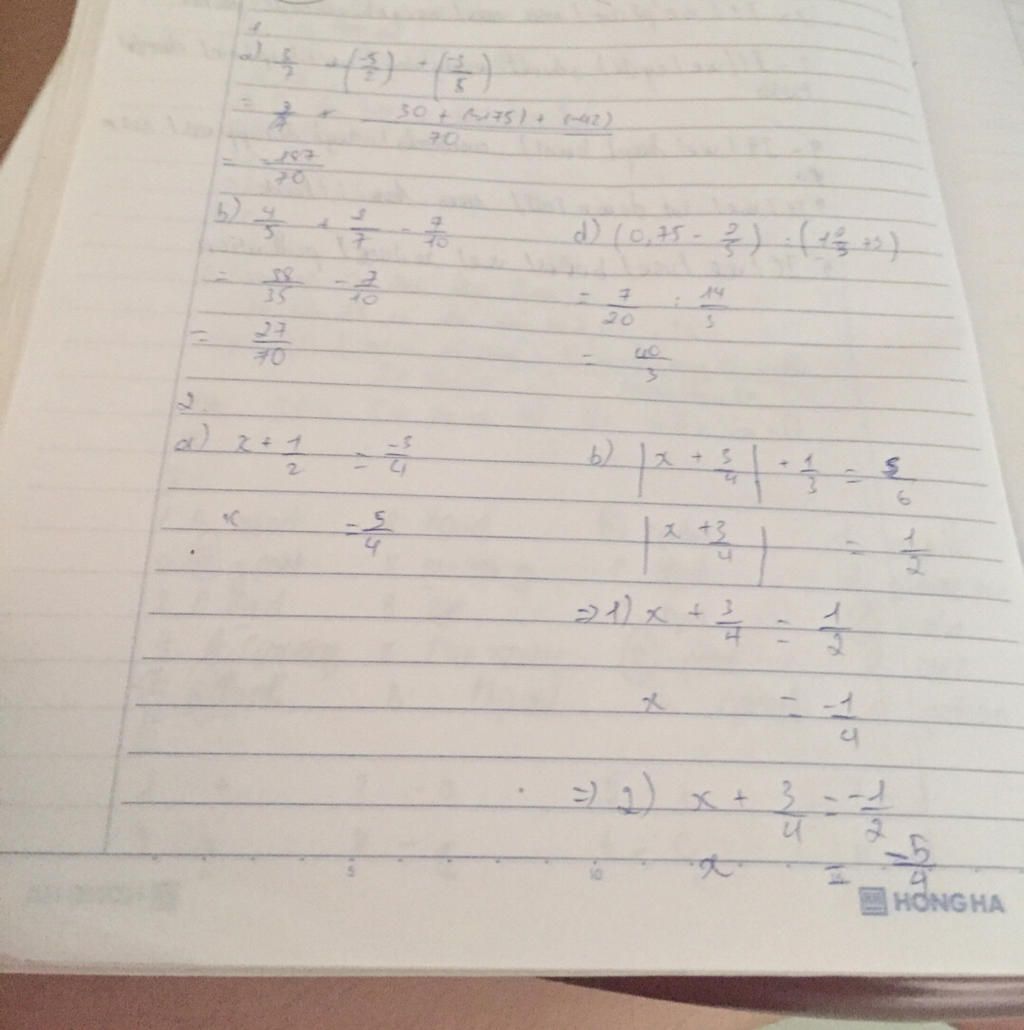 1.
a) 3/7 + (-5/2) + (-3/5)
= 30 + (-175) + (-42) / 70
= -187/70
b) 4/5 + 2/7 - 7/10
= 38/35 - 7/10
= 27/70
d) (0,75 - 2/5) : (1 2/3 + 3)
= 7/20 : 14/3
= 40/3
2.
a) x + 1/2 = -3/4
x = 5/4
b) |x + 3/4| + 1/3 = 5/6
|x + 3/4| = 1/2
=> 1) x + 3/4 = 1/2
x = -1/4
=> 2) x + 3/4 = -1/2
x = -5/4
5 10
HONG HA